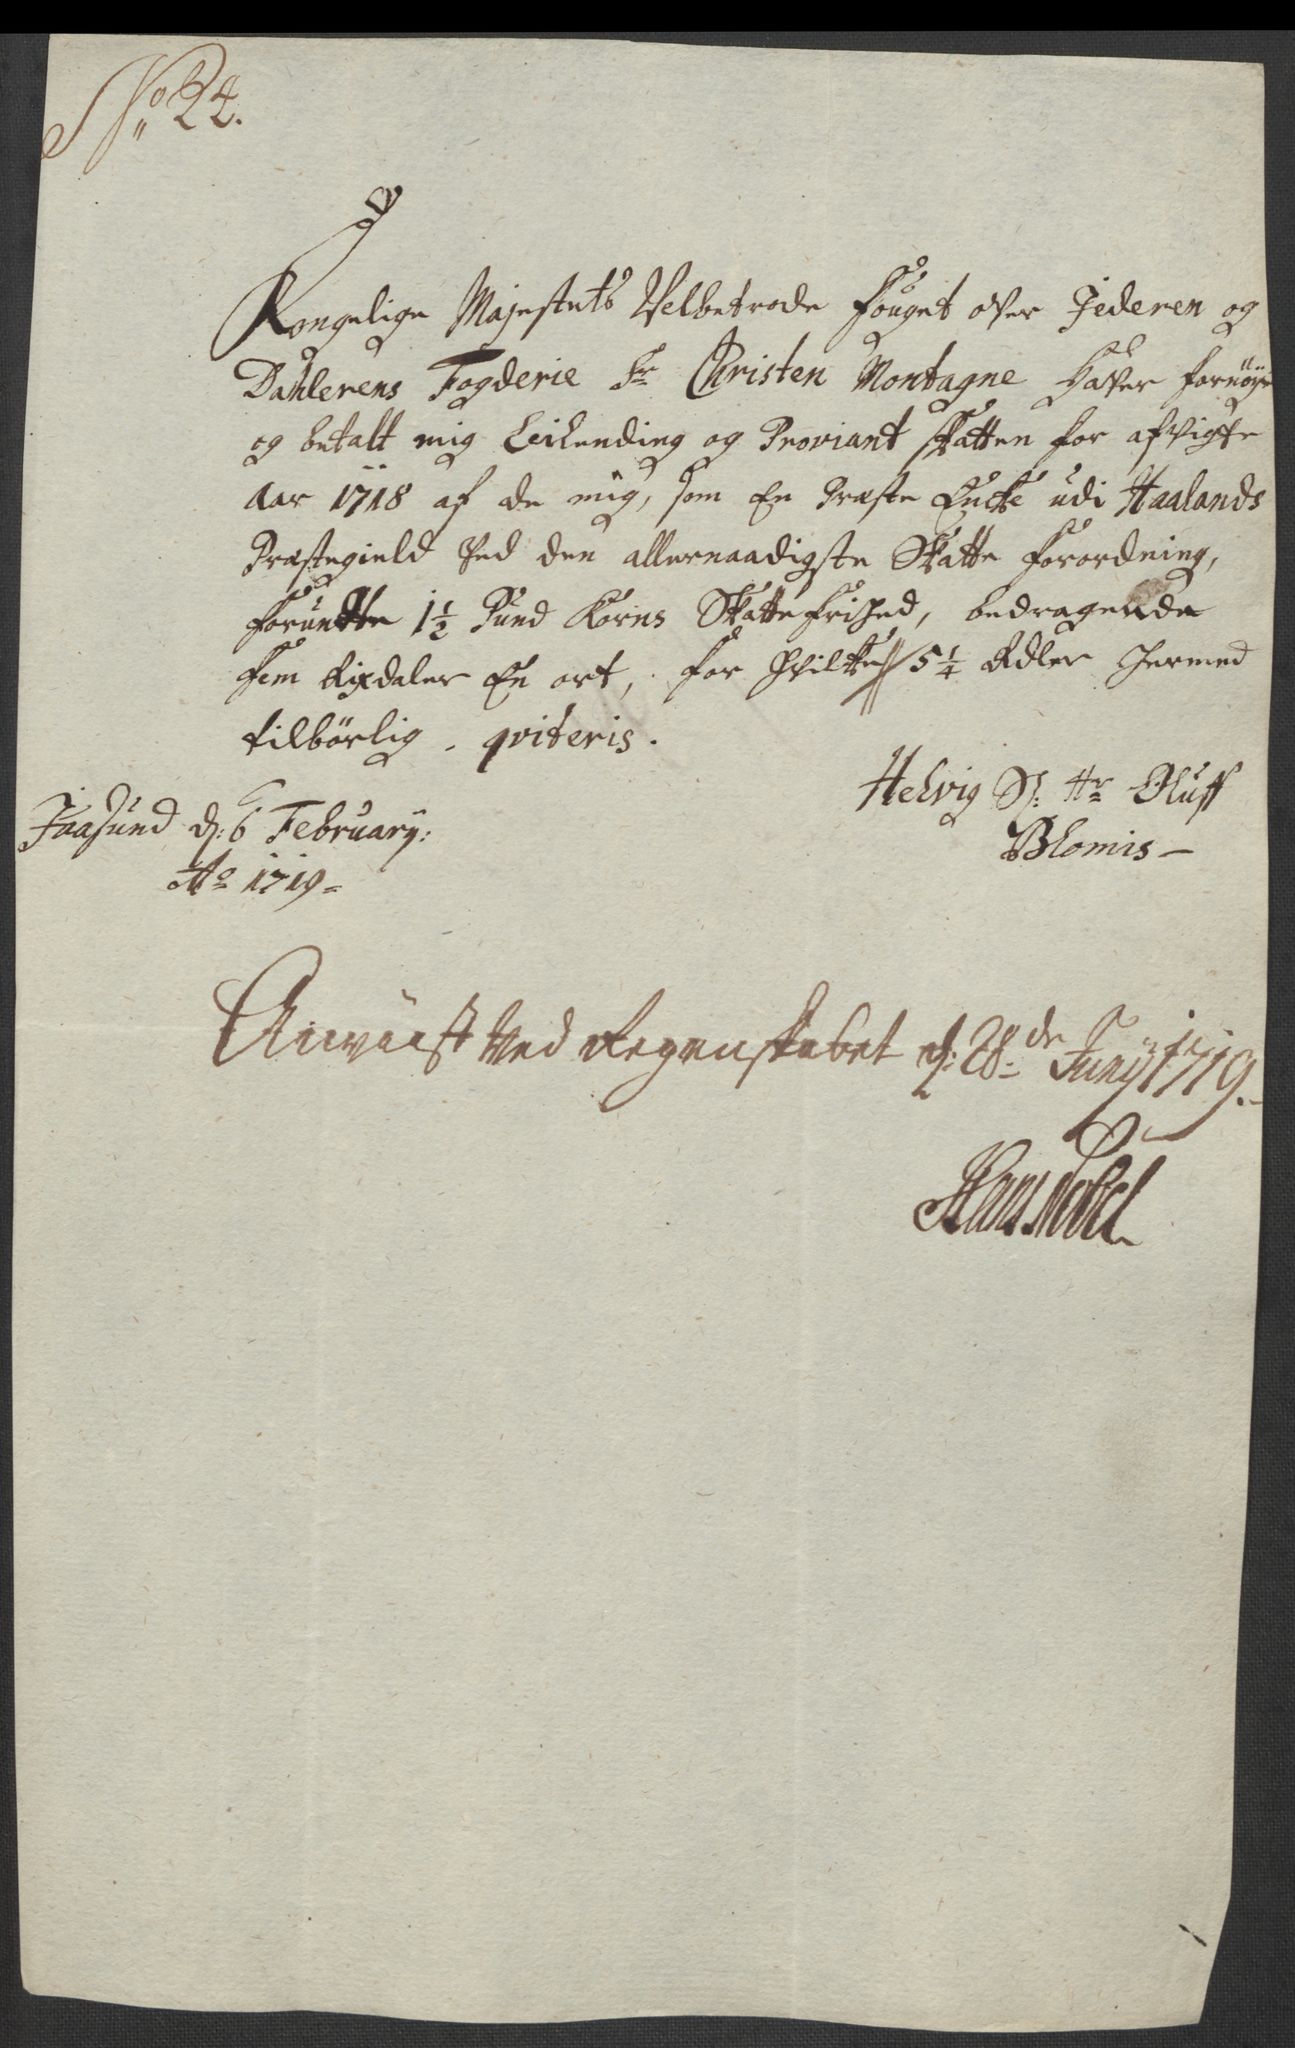 No 24.
Kongelige Majestets Velbetrode Fouget over Jederen og
Dahlerens Fogderie Sr Christen Montagne Haver fornøye
og betalt mig Leilending og Proviant skatten for afvigte
Aar 1718 af de mig, som En Præste Encke udi Haalands
Præstegield Ved den allernaadigste Skatte forordning,
forundte 1½ Pund Korns Skatte frihed, bedragende
fem Rixdaler En ort, for hvilke 5¼ Rdler hermed
tilbörlig qviteris.
Helvig Sl: Hr Oluff
Blomis
Jaasund d: 6 February:
Ao 1719
Anviist Ved Regenskabet d: 28de Juny 1719.
Hans Nobel